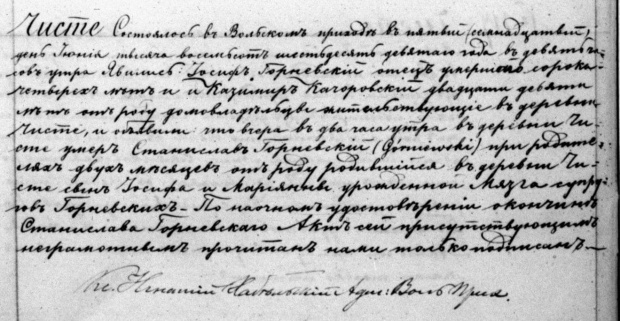 Чисте Состоялось въ Вольскомъ приходѣ въ пятый (семнадцатый)
день Іюнія тысяча восемьсотъ шестьдесятъ девятаго года въ девять ча-
совъ утра Явились: Іосифъ Горневскій отецъ умершаго сорока
четырехъ лѣтъ и и Казимиръ Качоровскій двадцати девяти
лѣтъ отъ роду домовладѣльцы жительствующіе въ деревни
Чисте, и объявили: что вчера въ два часа утра въ деревни Чи-
сте умеръ Станиславъ Горневскій (Górniewski) при родите-
ляхъ двухъ мѣсяцевъ отъ роду родившійся въ деревни Чи-
сте сынъ Іосифа и Маріянны урожденной Мязга супру-
говъ Горневскихъ. - По наочномъ удостовѣреніи окончины
Станислава Горневскаго Актъ сей присутствующимъ
неграмотнымъ прочитанъ нами только подписанъ. -
Кс. Адм: Воль. Прих.